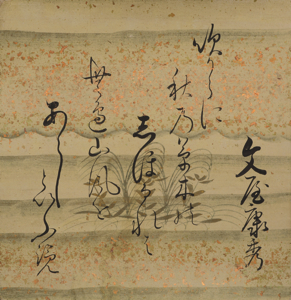 文屋康秀
吹からに
秋乃草木能
志ほるれは
無へ山風を
あらしといふ覧